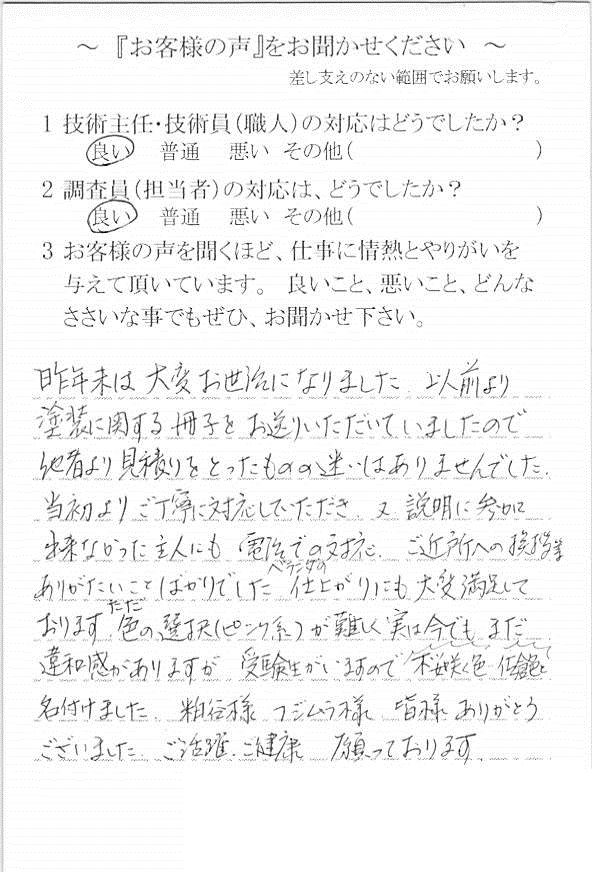 ～『お客様の声』をお聞かせください ～
差し支えのない範囲でお願いします。
1 技術主任・技術員(職人)の対応はどうでしたか？
良い 普通 悪い その他( )
2 調査員(担当者)の対応は、どうでしたか？
良い 普通 悪い その他( )
3 お客様の声を聞くほど、仕事に情熱とやりがいを
与えて頂いています。 良いこと、悪いこと、どんな
ささいな事でもぜひ、お聞かせ下さい。
昨年末は大変お世話になりました。以前より
塗装に関する冊子をお送りいただいていましたので
他者より見積りをとったものの迷いはありませんでした。
当初よりご丁寧に対応していただき 又 説明に参加
出来なかった主人にも 電話での対応、ご近所への挨拶等
ありがたいことばかりでした ベランダの仕上がりにも大変満足して
おります ただ色の選択(ピンク系)が難しく実は今でもまだ
違和感がありますが 受験生がいますので 桜咲く色 と
名付けました 粕谷様 フジムラ様 皆様ありがとう
ございました ご活躍、ご健康 願っております。